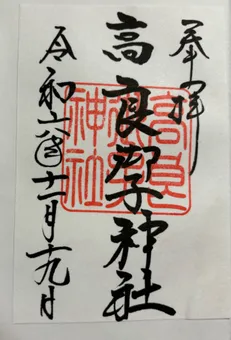 奉拝
高良御子神社
令和六年十一月十九日
高良
神社